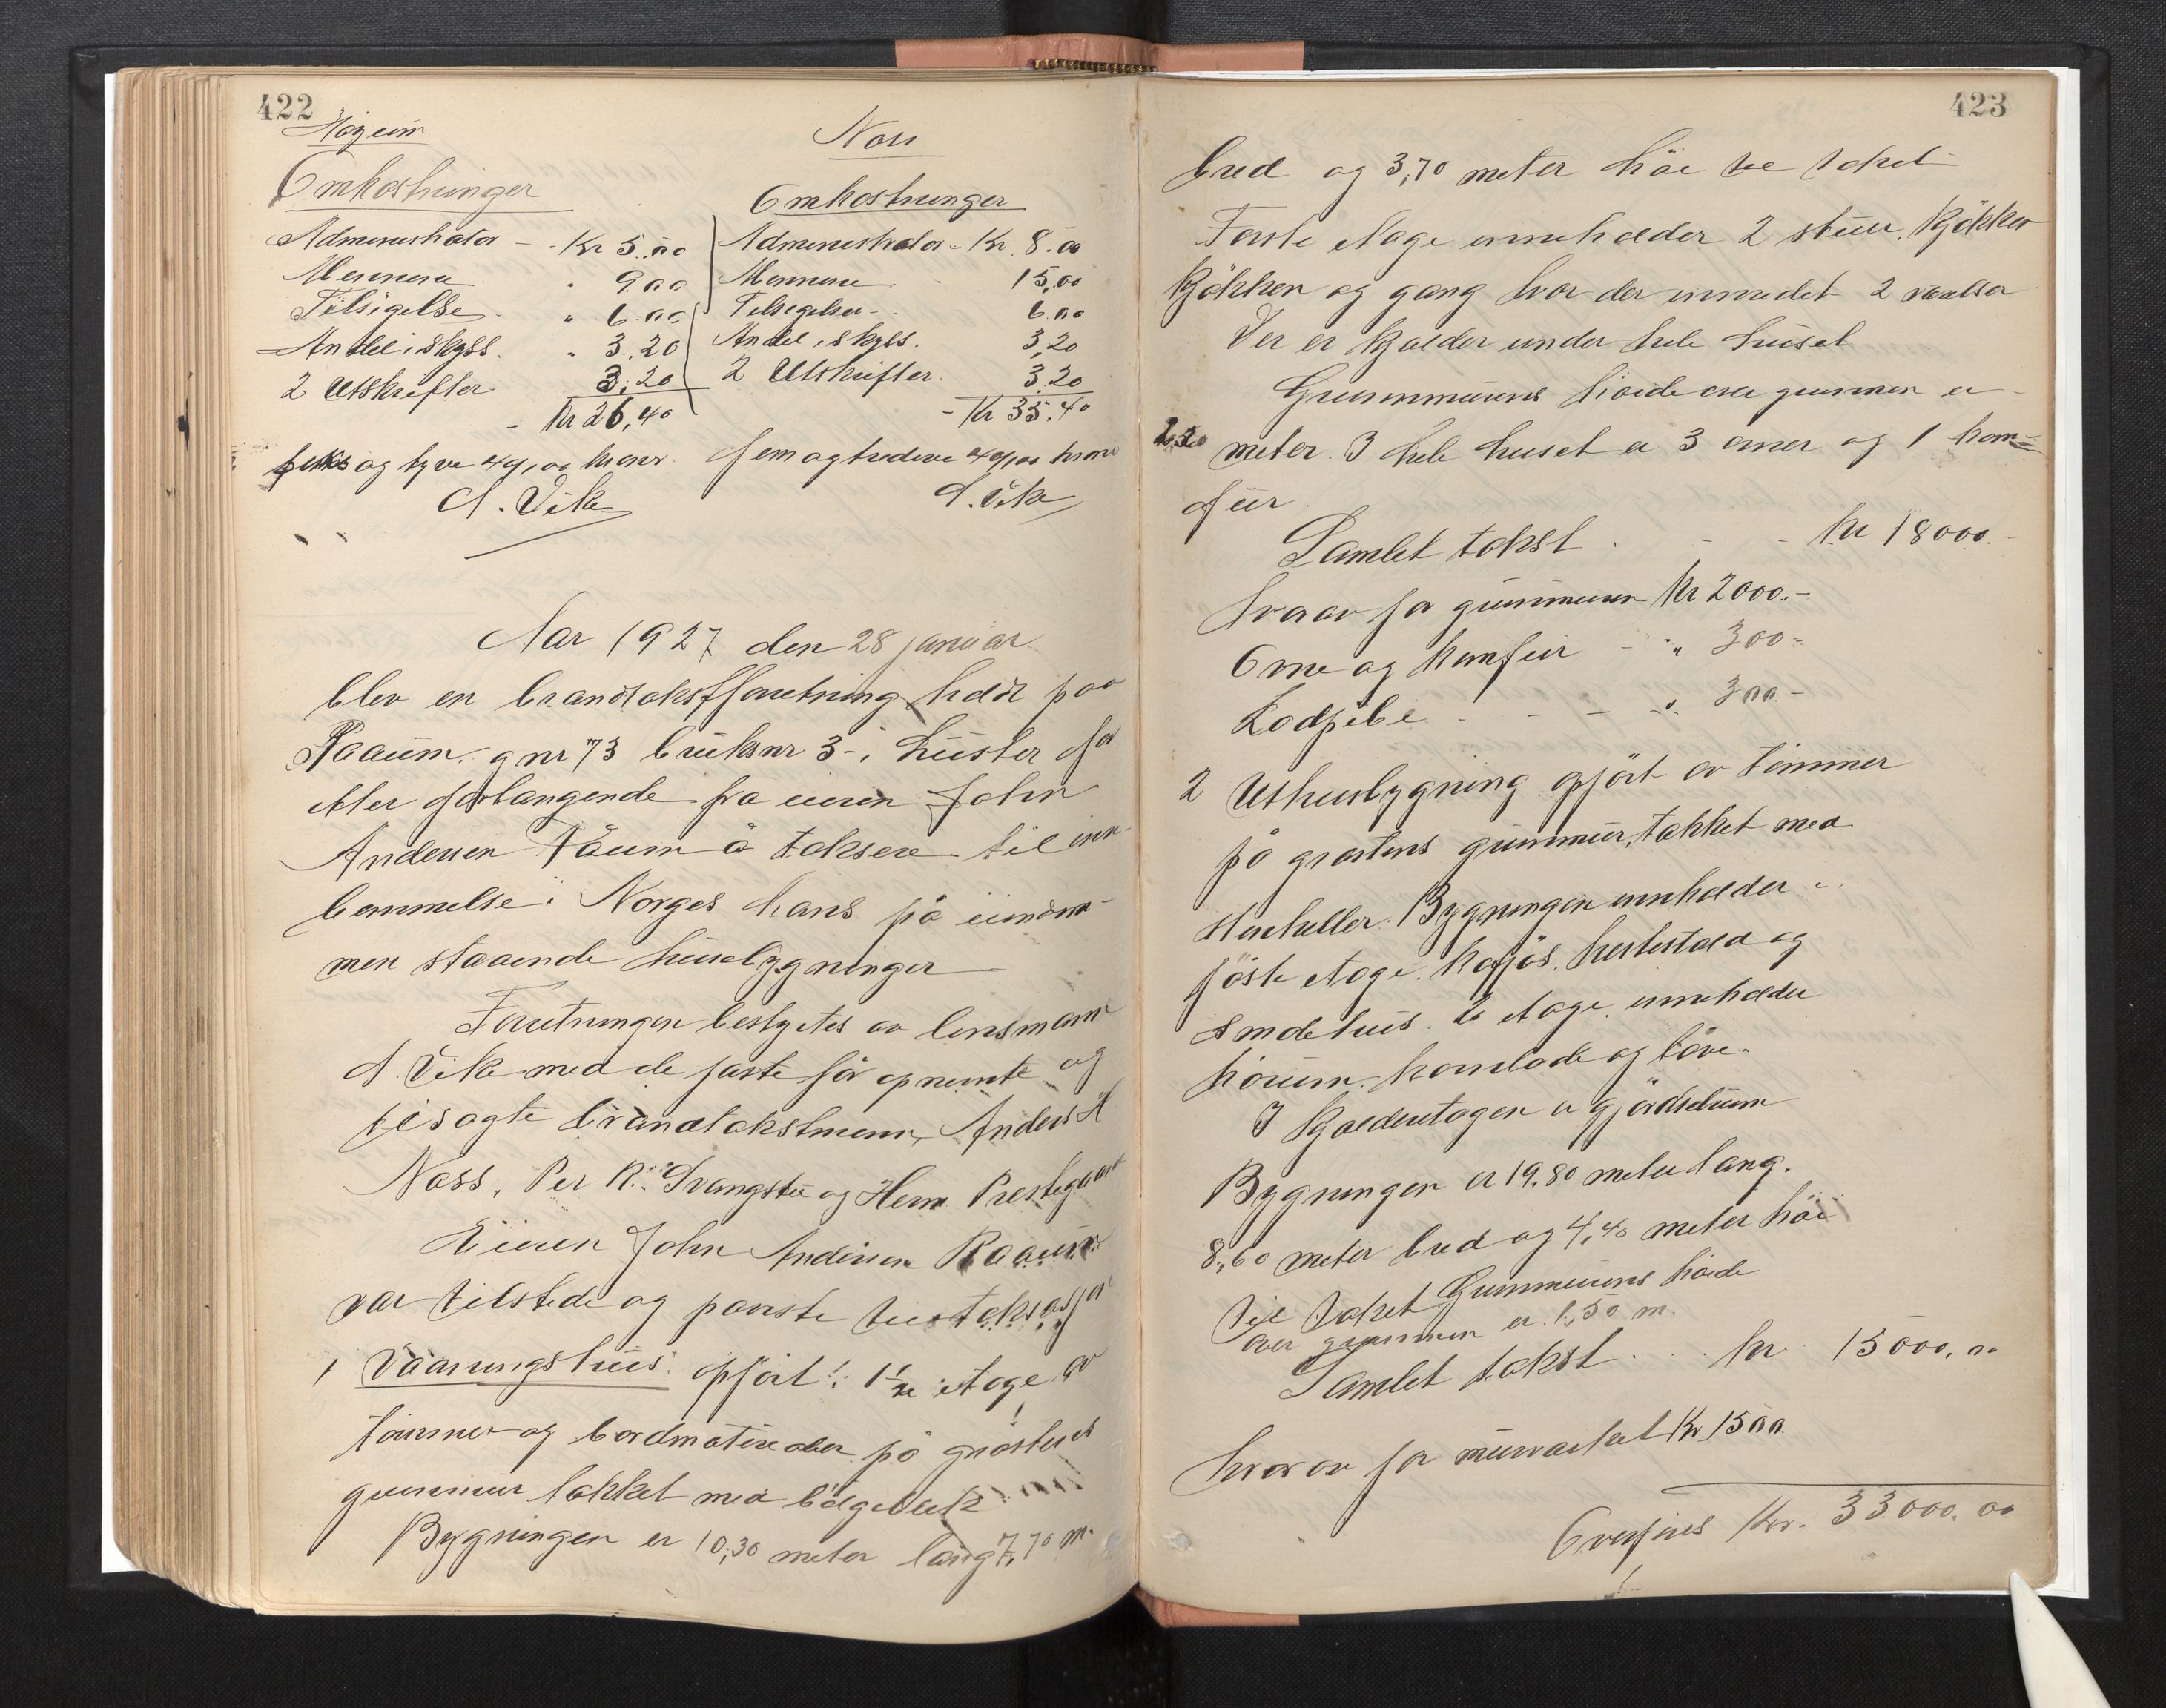 422
Høyeim
Omkostninger
Administrator - - Kr 5.00
Mennene " 9.00
Tilsigelse " 6.00
Andel i skyss. " 3.20
2 Utskrifter 3.20
- Kr 26,40
seks og tyve 40/00 kroner
A. Vike
Ness
Omkostninger
Administrator - Kr. 8.00
Mennene 15,00
Tilsigelser - 6.00
Andel i skyss. 3,20
2 Utskrifter. 3.20
- Kr 35.40
fem og tredeve 40/00 kroner
A. Vike
Aar 1927 den 28 januar
blev en brandtakstforretning holdt paa
Raaum. gnr 73 bruksnr 3 - i Luster
etter forlangende fra eieren John
Andersen Råum å taksere til inn-
lemmelse i Norges
men staaende husebygninger
Forretningen bestyrtes av lensmann
A. Vike med de faste før opnevnte og
tilsagte brandtakstmenn, Anders H
Ness, Per R. og Herm Prestegaard
Eieren John Andersen Raaum
var tilstede og paaviste
1 Vaaningshus: opført i 1 1/2 etage av
tømmer og bordmaterialer på gråstens
grunnmur takket med bølgeblikk
Bygningen er 10,30 meter lang 7,70 m.
423
bred og 3,70 meter høi til taket
Første etage inneholder 2 stuer, kjøkken
kjøkken og gang hvor der innredet 2 værelser
Der er kjælder under hele huset
Grunnmurens høide over grunnen er
2.20 meter. I hele huset er 3 ovner og 1 kom-
fur
Samlet takst . - - kr 18000.-
hvorav for grunnmuren Kr 2000.-
Ovne og komfur - " 300.-
Lodpibe - - - - ". 300.-
2 Uthusbygning opført av tømmer
på gråstens grunnmur, takket med
stenheller. Bygningen innholder i
føste etage. kufjøs, hestestald og
smalehus. 2 etage inneholder
høirum. kornlade og låve.
I kjælderetagen er gjødselrum
Bygningen er 19,80 meter lang.
8,60 meter bred og 4,40 meter høi
til taket Grunnmurens høide
over grunnen er 1,50 m.
Samlet takst . . . kr 15000,00
hvorav for murværket Kr 1500
Overføres Kr. 33.000.00